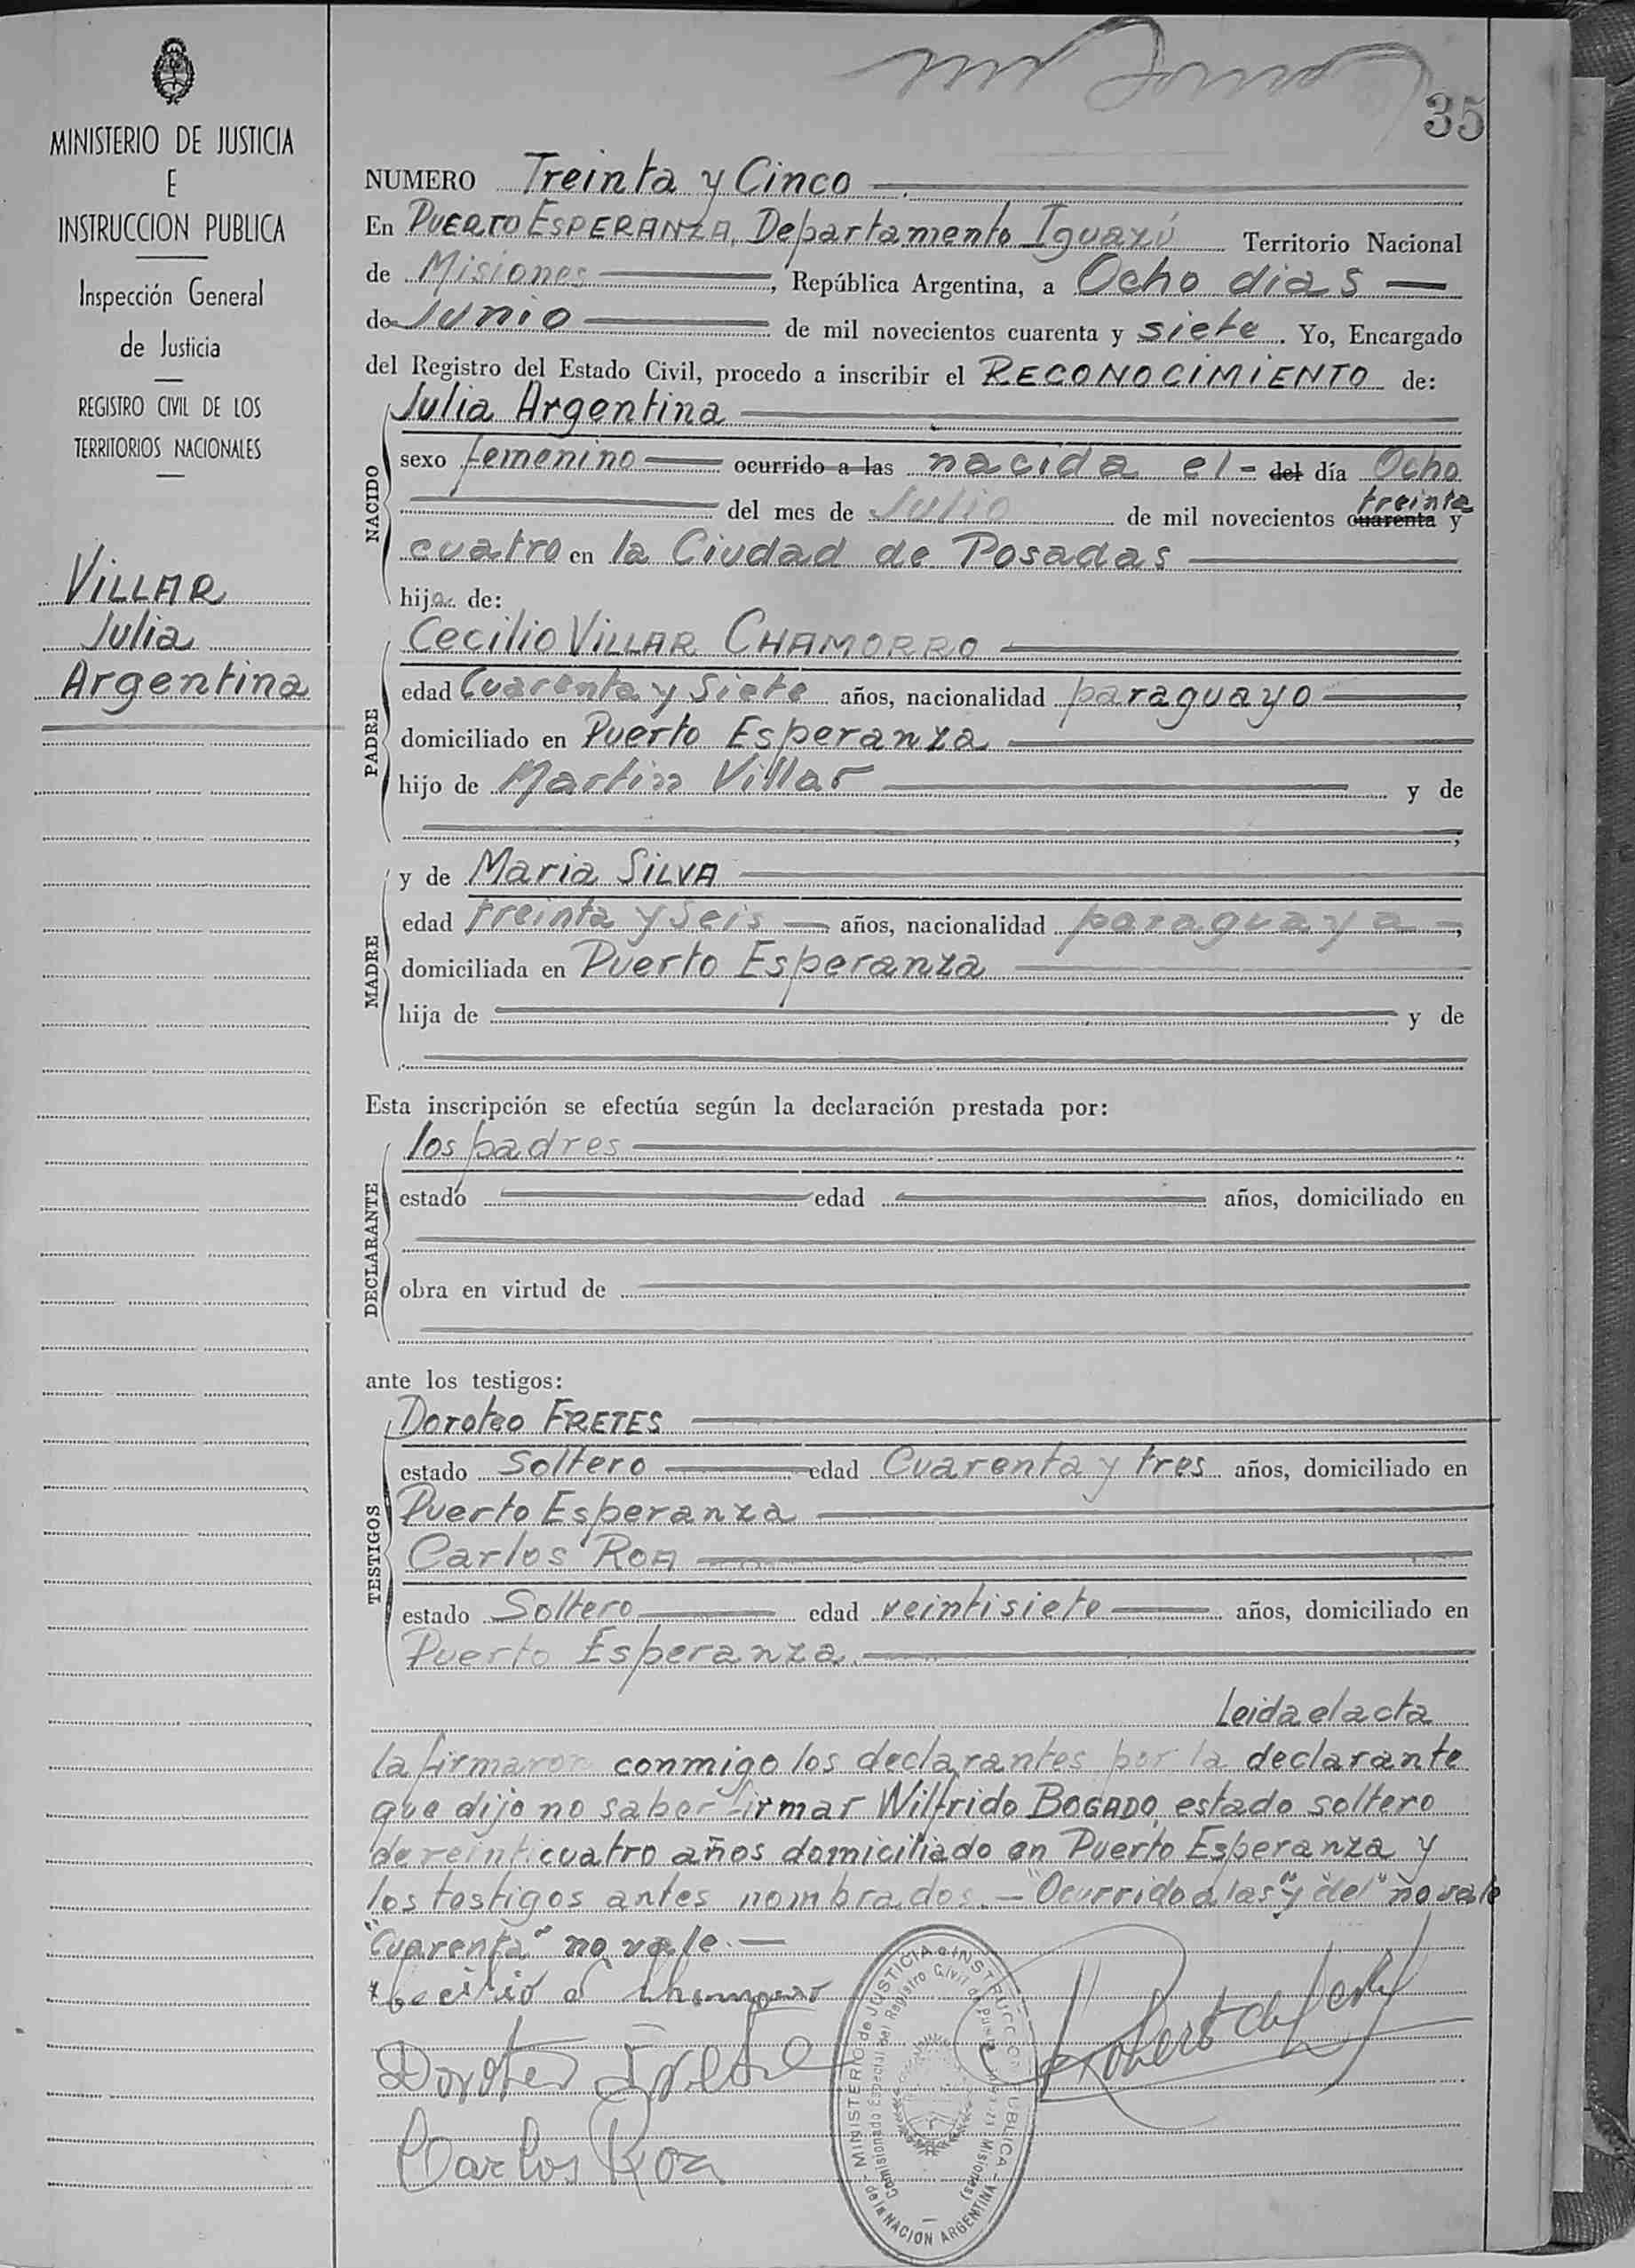 35
MINISTERIO DE JUSTICIA
E
INSTRUCCION PUBLICA
Inspección General
de Justicia
REGISTRO CIVIL DE LOS
TERRITORIOS NACIONALES
VILLAR
Julia
Argentina
NUMERO Treinta y Cinco
En PUERTO ESPERANZA, Departamento Iguazú Territorio Nacional
de Misiones, República Argentina, a Ocho dias
de Junio de mil novecientos cuarenta y siete. Yo, Encargado
del Registro del Estado Civil, procedo a inscribir el RECONOCIMIENTO de:
NACIDO
Julia Argentina
sexo femenino ocurrido a las nacida el - del día Ocho
treinta
del mes de Julio de mil novecientos cuarenta y
cuatro en la Ciudad de Posadas
hija de:
PADRE
Cecilio VILLAR CHAMORRO
edad Cuarenta y Siete años, nacionalidad paraguayo,
domiciliado en Puerto Esperanza
hijo de Martin Villar y de
MADRE
y de Maria SILVA
edad treinta y seis años, nacionalidad paraguaya,
domiciliada en Puerto Esperanza
hija de y de
Esta inscripción se efectúa según la declaración prestada por:
DECLARANTE
los padres
estado edad años, domiciliado en
obra en virtud de
ante los testigos:
TESTIGOS
Doroteo FRETES
estado Soltero edad Cuarenta y tres años, domiciliado en
Puerto Esperanza
Carlos ROA
estado Soltero edad veintisiete años, domiciliado en
Puerto Esperanza.
Leida el acta
la firmaron conmigo los declarantes por la declarante
que dijo no saber firmar Wilfrido BOGADO, estado soltero
de veinticuatro años domiciliado en Puerto Esperanza y
los testigos antes nombrados.— "Ocurrido a las" y "del" no vale
"Cuarenta" no vale.—
Doroteo
Carlos Roa
MINISTERIO de JUSTICIA e INSTRUCCION PUBLICA
de la NACION ARGENTINA